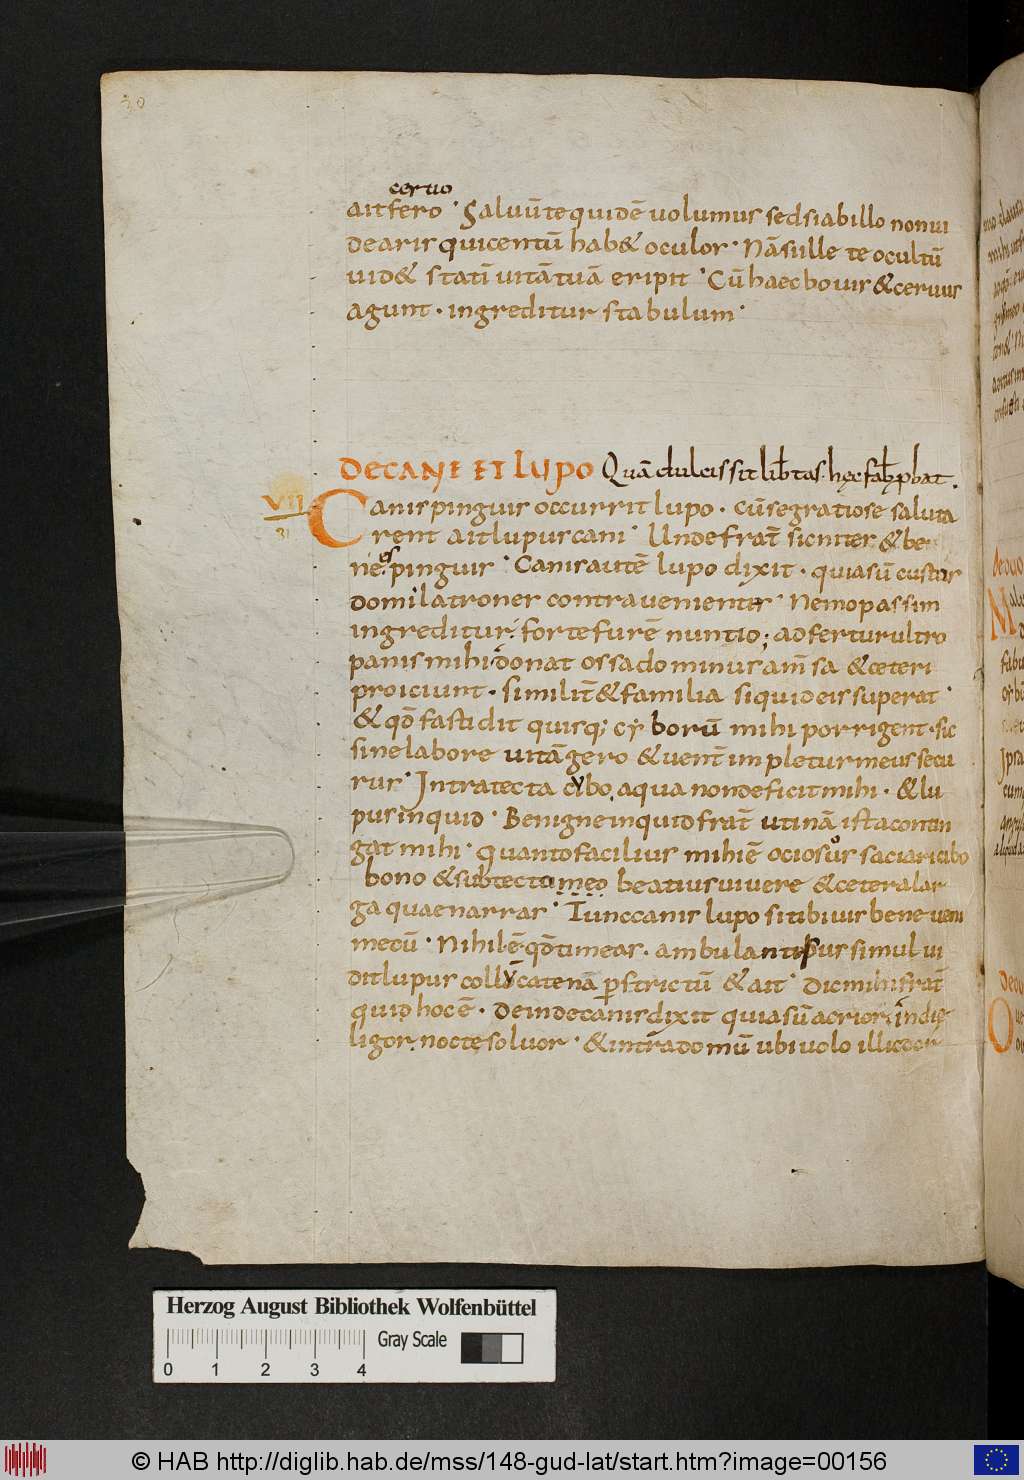 30
ceruo
ait fero · Saluū te quidē uolumus sed si ab illo non ui
dearis qui centū hab& oculos · Nā si ille te ocultū
uid& statī uitā tuā eripit · Cū haec bouis & ceruus
agunt · ingreditur stabulum ·
DE CANE ET LUPO Quā dulcis sit lib̄tas · hęc fab̄ ꝓbat .
VII
31
Canis pinguis occurrit lupo · cū se gratiose saluta
rent ait lupus cani · Unde frat̄ sic niter & be
ne es pinguis · Canis autē lupo dixit · quia sū custos
domi latrones contra uenientes · Nemo passim
ingreditur · forte furē nuntio ; adfertur ultro
panis mihi donat ossa dominus am̄ sa & ceteri
proiciunt · similit̄ & familia si quid eis superat ·
& qd̄ fastidit quisq; cyborū mihi porrigent · sic
sine labore uitā gero & uent̄ impletur meus secu
rus · Intra tecta cybo aqua non deficit mihi · & lu
pus inquid · Benigne inquid frat̄ utinā ista contin
gat mihi · quanto facilius mihi ē ociosus saciari cibo
bono & sub tecto meo beatius uiuere & cetera lar
ga quae narras · Tunc canis lupo si tibi uis bene ueni
mecū · Nihil ē qd̄ timeas · ambulant simul ui
dit lupus colly catenā ꝑstrictū & ait · Dic mihi frat̄
quid hoc ē · Deinde canis dixit quia sū acrior in die
ligor nocte soluor · & intra domū ubi uolo illic dor
Herzog August Bibliothek Wolfenbüttel
Gray Scale
0 1 2 3 4
© HAB http://diglib.hab.de/mss/148-gud-lat/start.htm?image=00156